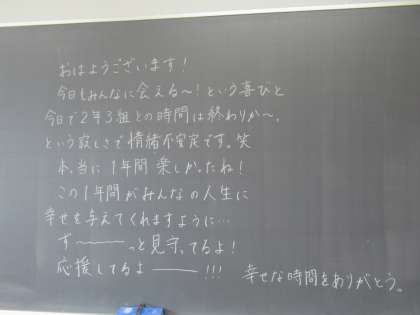 おはようございます!
今日もみんなに会える〜!という喜びと
今日で2年3組との時間は終わりか〜、
という寂しさで情緒不安定です。笑
本当に1年間楽しかったね!
この1年間がみんなの人生に
幸せを与えてくれますように…
ず———っと見守ってるよ!
応援してるよ———!!!
幸せな時間をありがとう。